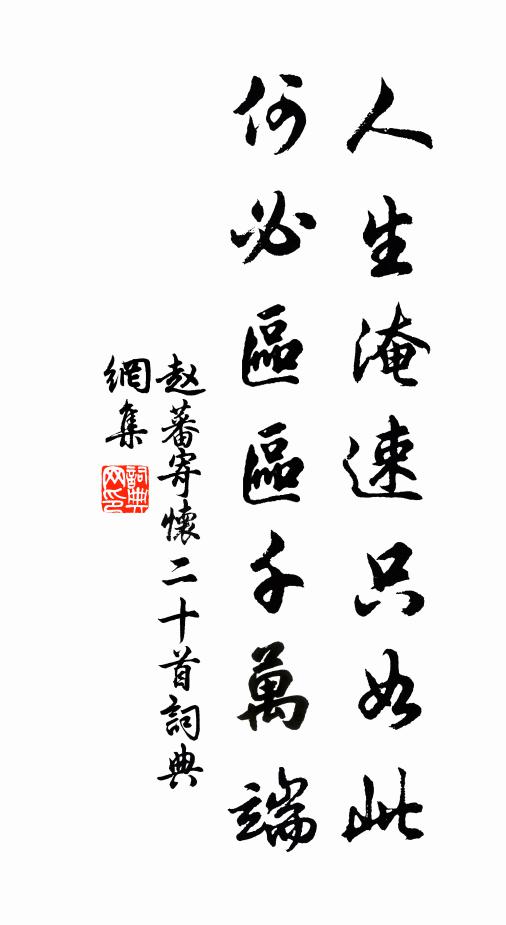 人生淹速只如此
何必區區千萬端
赵蕃寄懷二十首詞典
網集
詞典網印